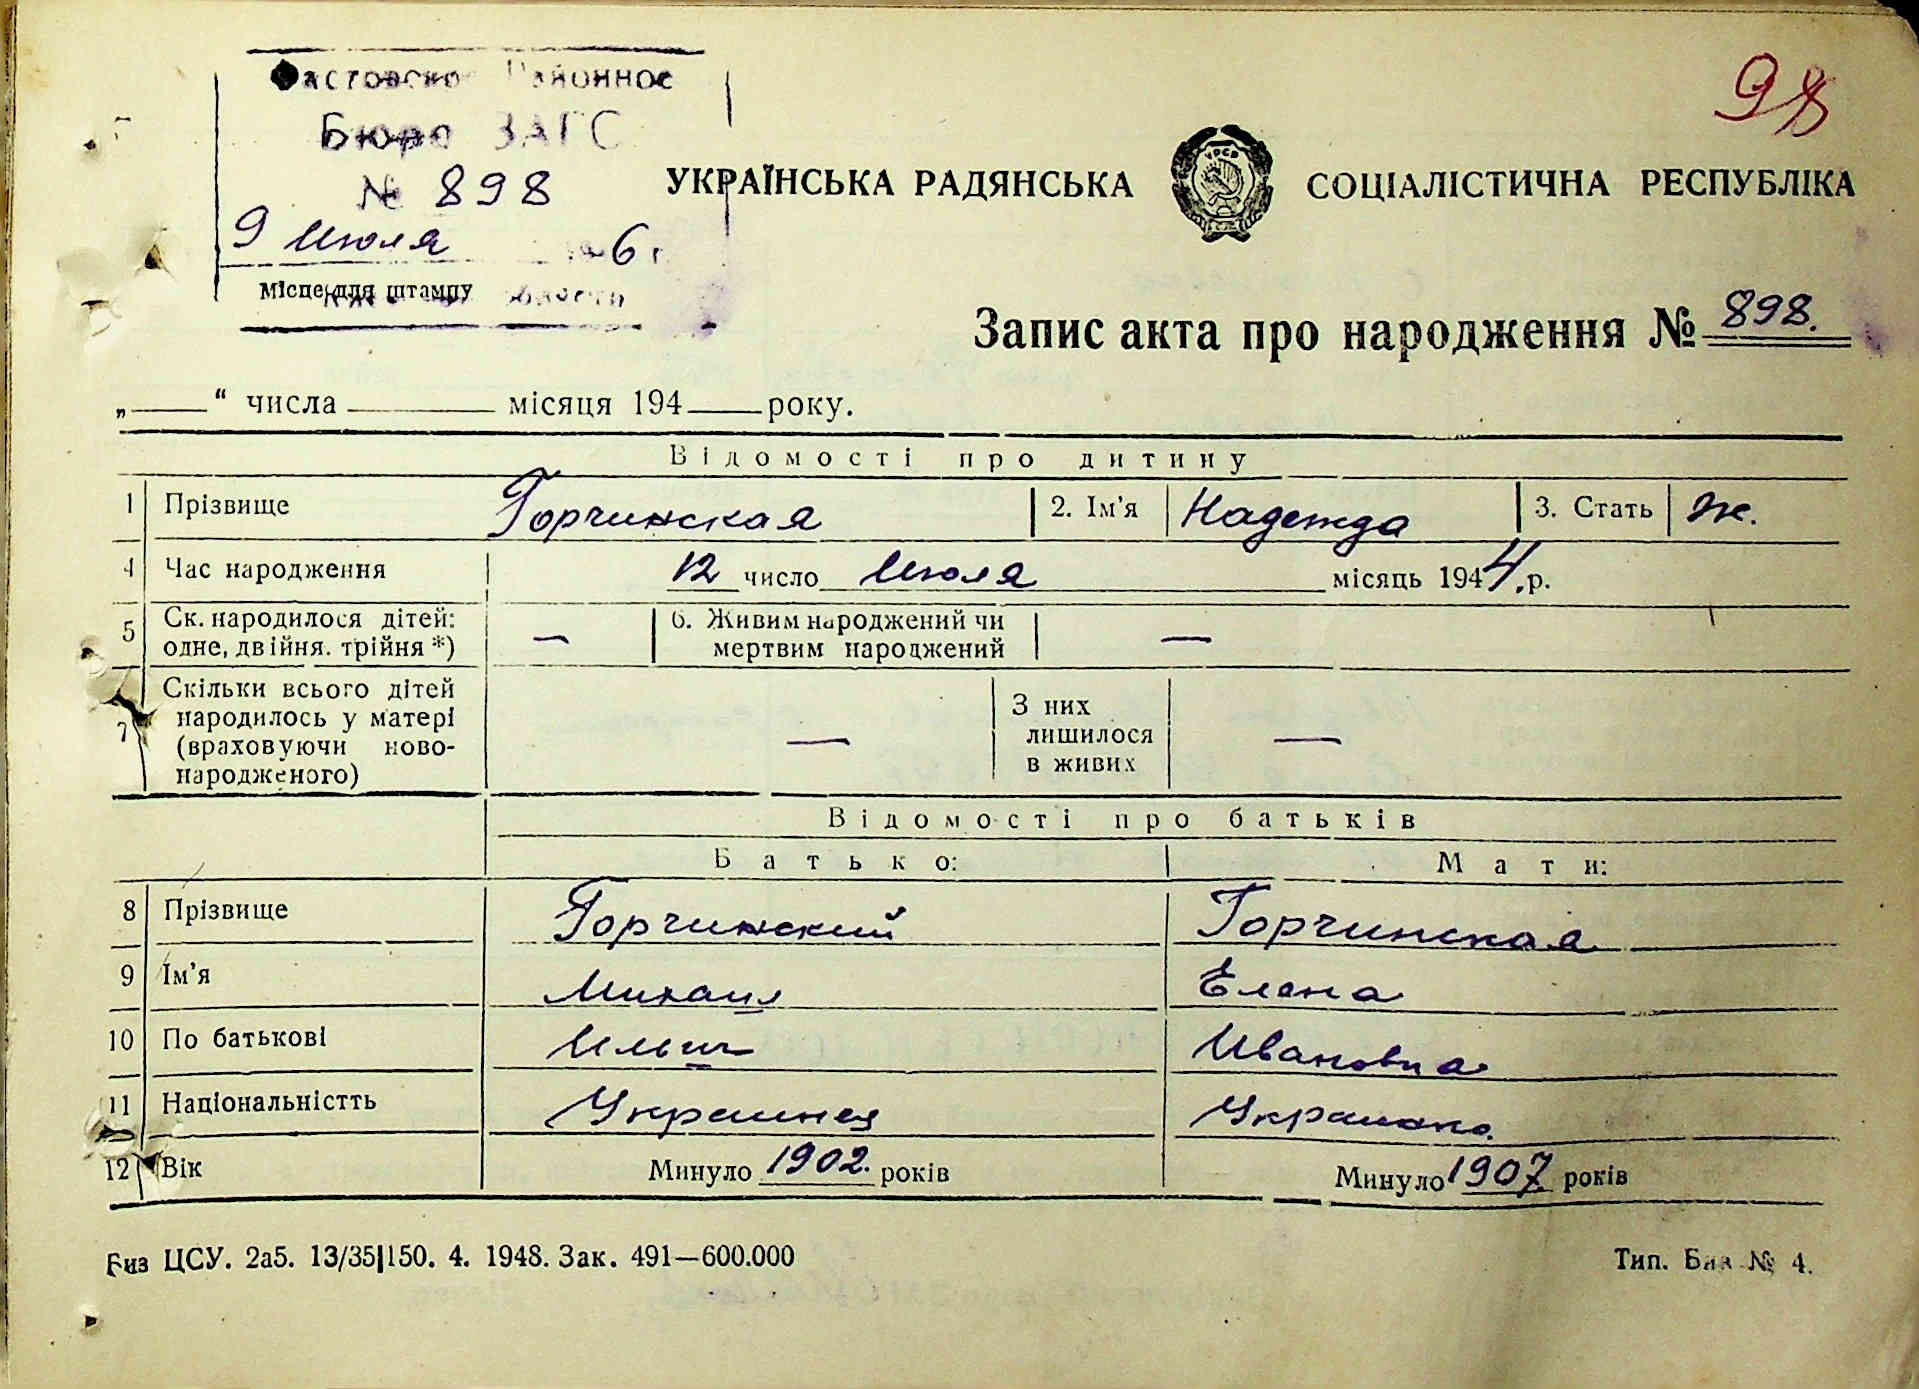 98
Фастовское Районное
Бюро ЗАГС
№ 898
9 Июля 6 г.
Місце для штампу
області
УКРАЇНСЬКА РАДЯНСЬКА СОЦІАЛІСТИЧНА РЕСПУБЛІКА
УРСР
Запис акта про народження № 898.
„____“ числа ________ місяця 194____року.
Відомості про дитину
1 Прізвище Горчинская 2. Ім'я Надежда 3. Стать Ж.
4 Час народження 12 число Июля місяць 1944.р.
5 Ск. народилося дітей: одне, двійня. трійня *) — 6. Живим народжений чи мертвим народжений —
7 Скільки всього дітей народилось у матері (враховуючи ново-народженого) — З них лишилося в живих —
Відомості про батьків
Батько: Мати:
8 Прізвище Горчинский Горчинская
9 Ім'я Михаил Елена
10 По батькові Ильич Ивановна
11 Національністть Украинец Украинка.
12 Вік Минуло 1902. років Минуло 1907 років
Биз ЦСУ. 2а5. 13/35|150. 4. 1948. Зак. 491—600.000
Тип. Биз № 4.